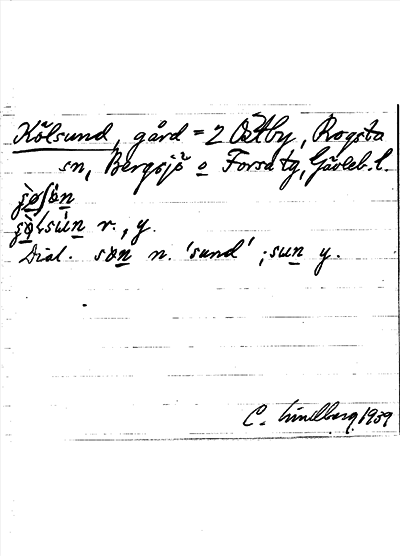 Kölsund, gård = 2 Östby, Rogsta
sn, Bergsjö o Forsa tg, Gävleb. l.
r., y.
Dial. sɷn n. 'sund' ; sun y.
C. Lindberg 1939